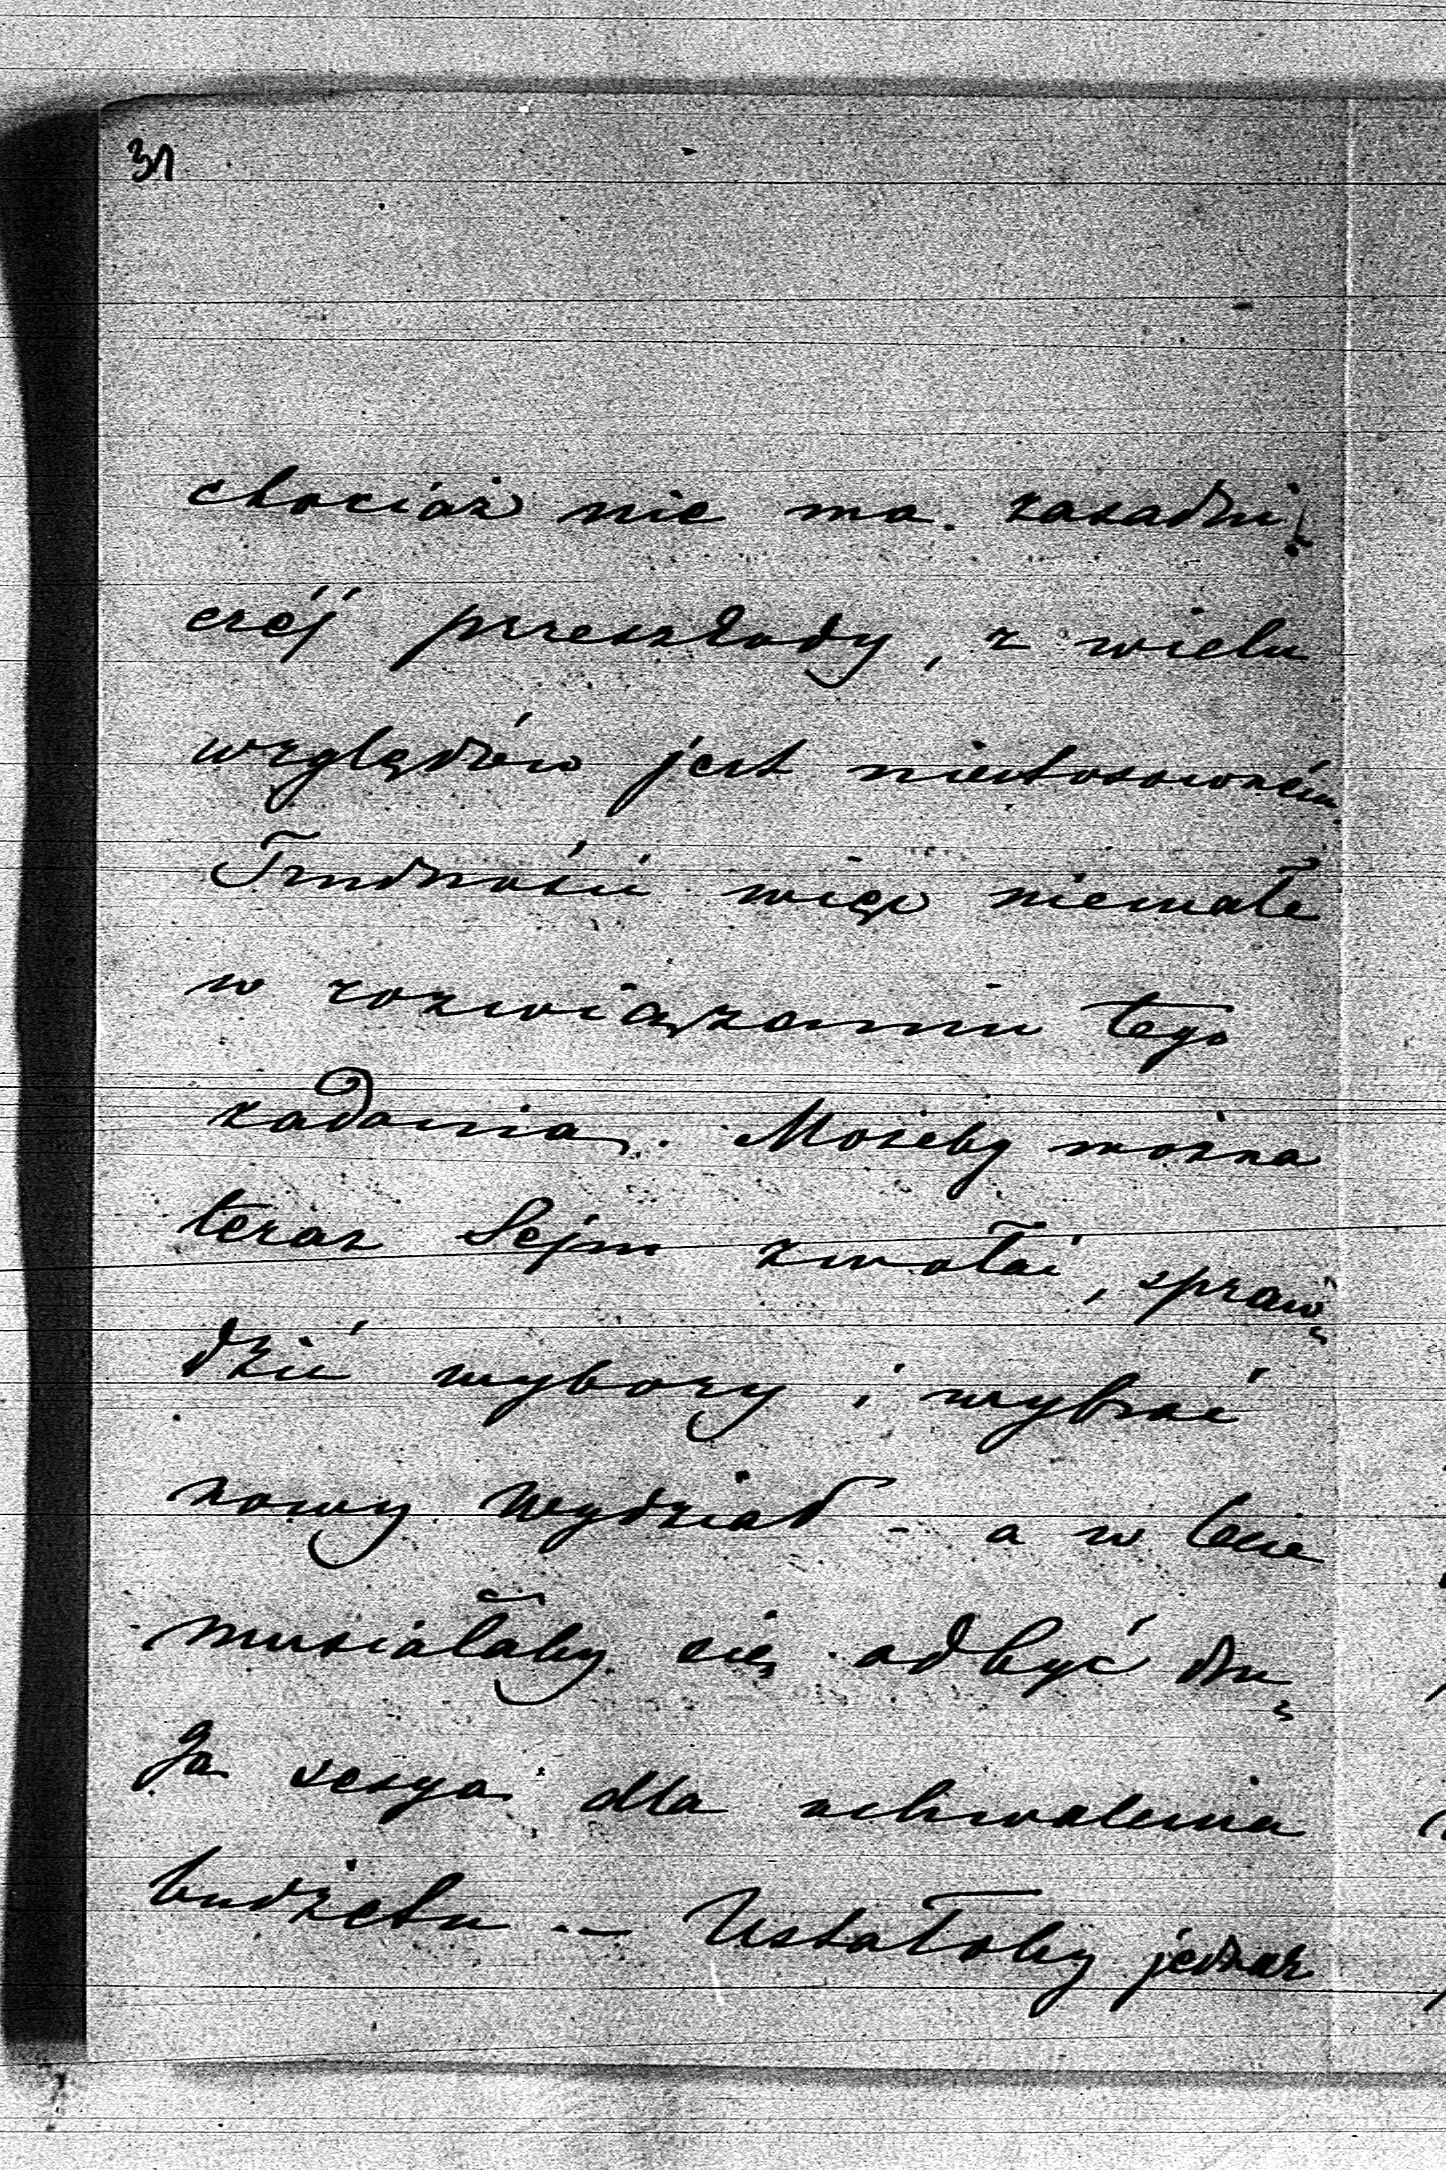 31
chociaż nie ma zasadni-
czéj przeszkody, z wielu
względów jest niestosowném.
Trudności więc niemałe
w rozwiązaniu tego
zadania. Możeby można
teraz Sejm zwołać, spraw-
dzić wybory i wybrać
nowy Wydział – a w lecie
musiałaby się odbyć dru-
ga sesya dla uchwalenia
budżetu. – Ustałoby jednak